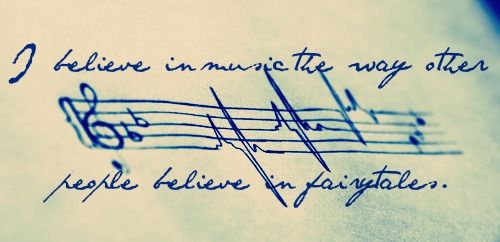 I believe in music the way other
people believe in fairytales.